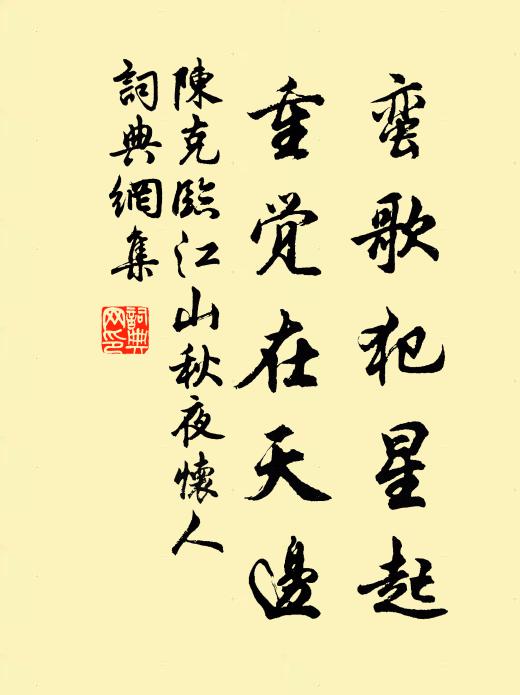 蛮歌犯星起
重觉在天邊
陳克臨江山秋夜懷人
詞典網集
詞典網印